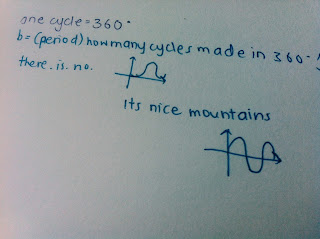 one cycle = 360°
b = (period) how many cycles made in 360°
there. is. no.
Its nice mountains